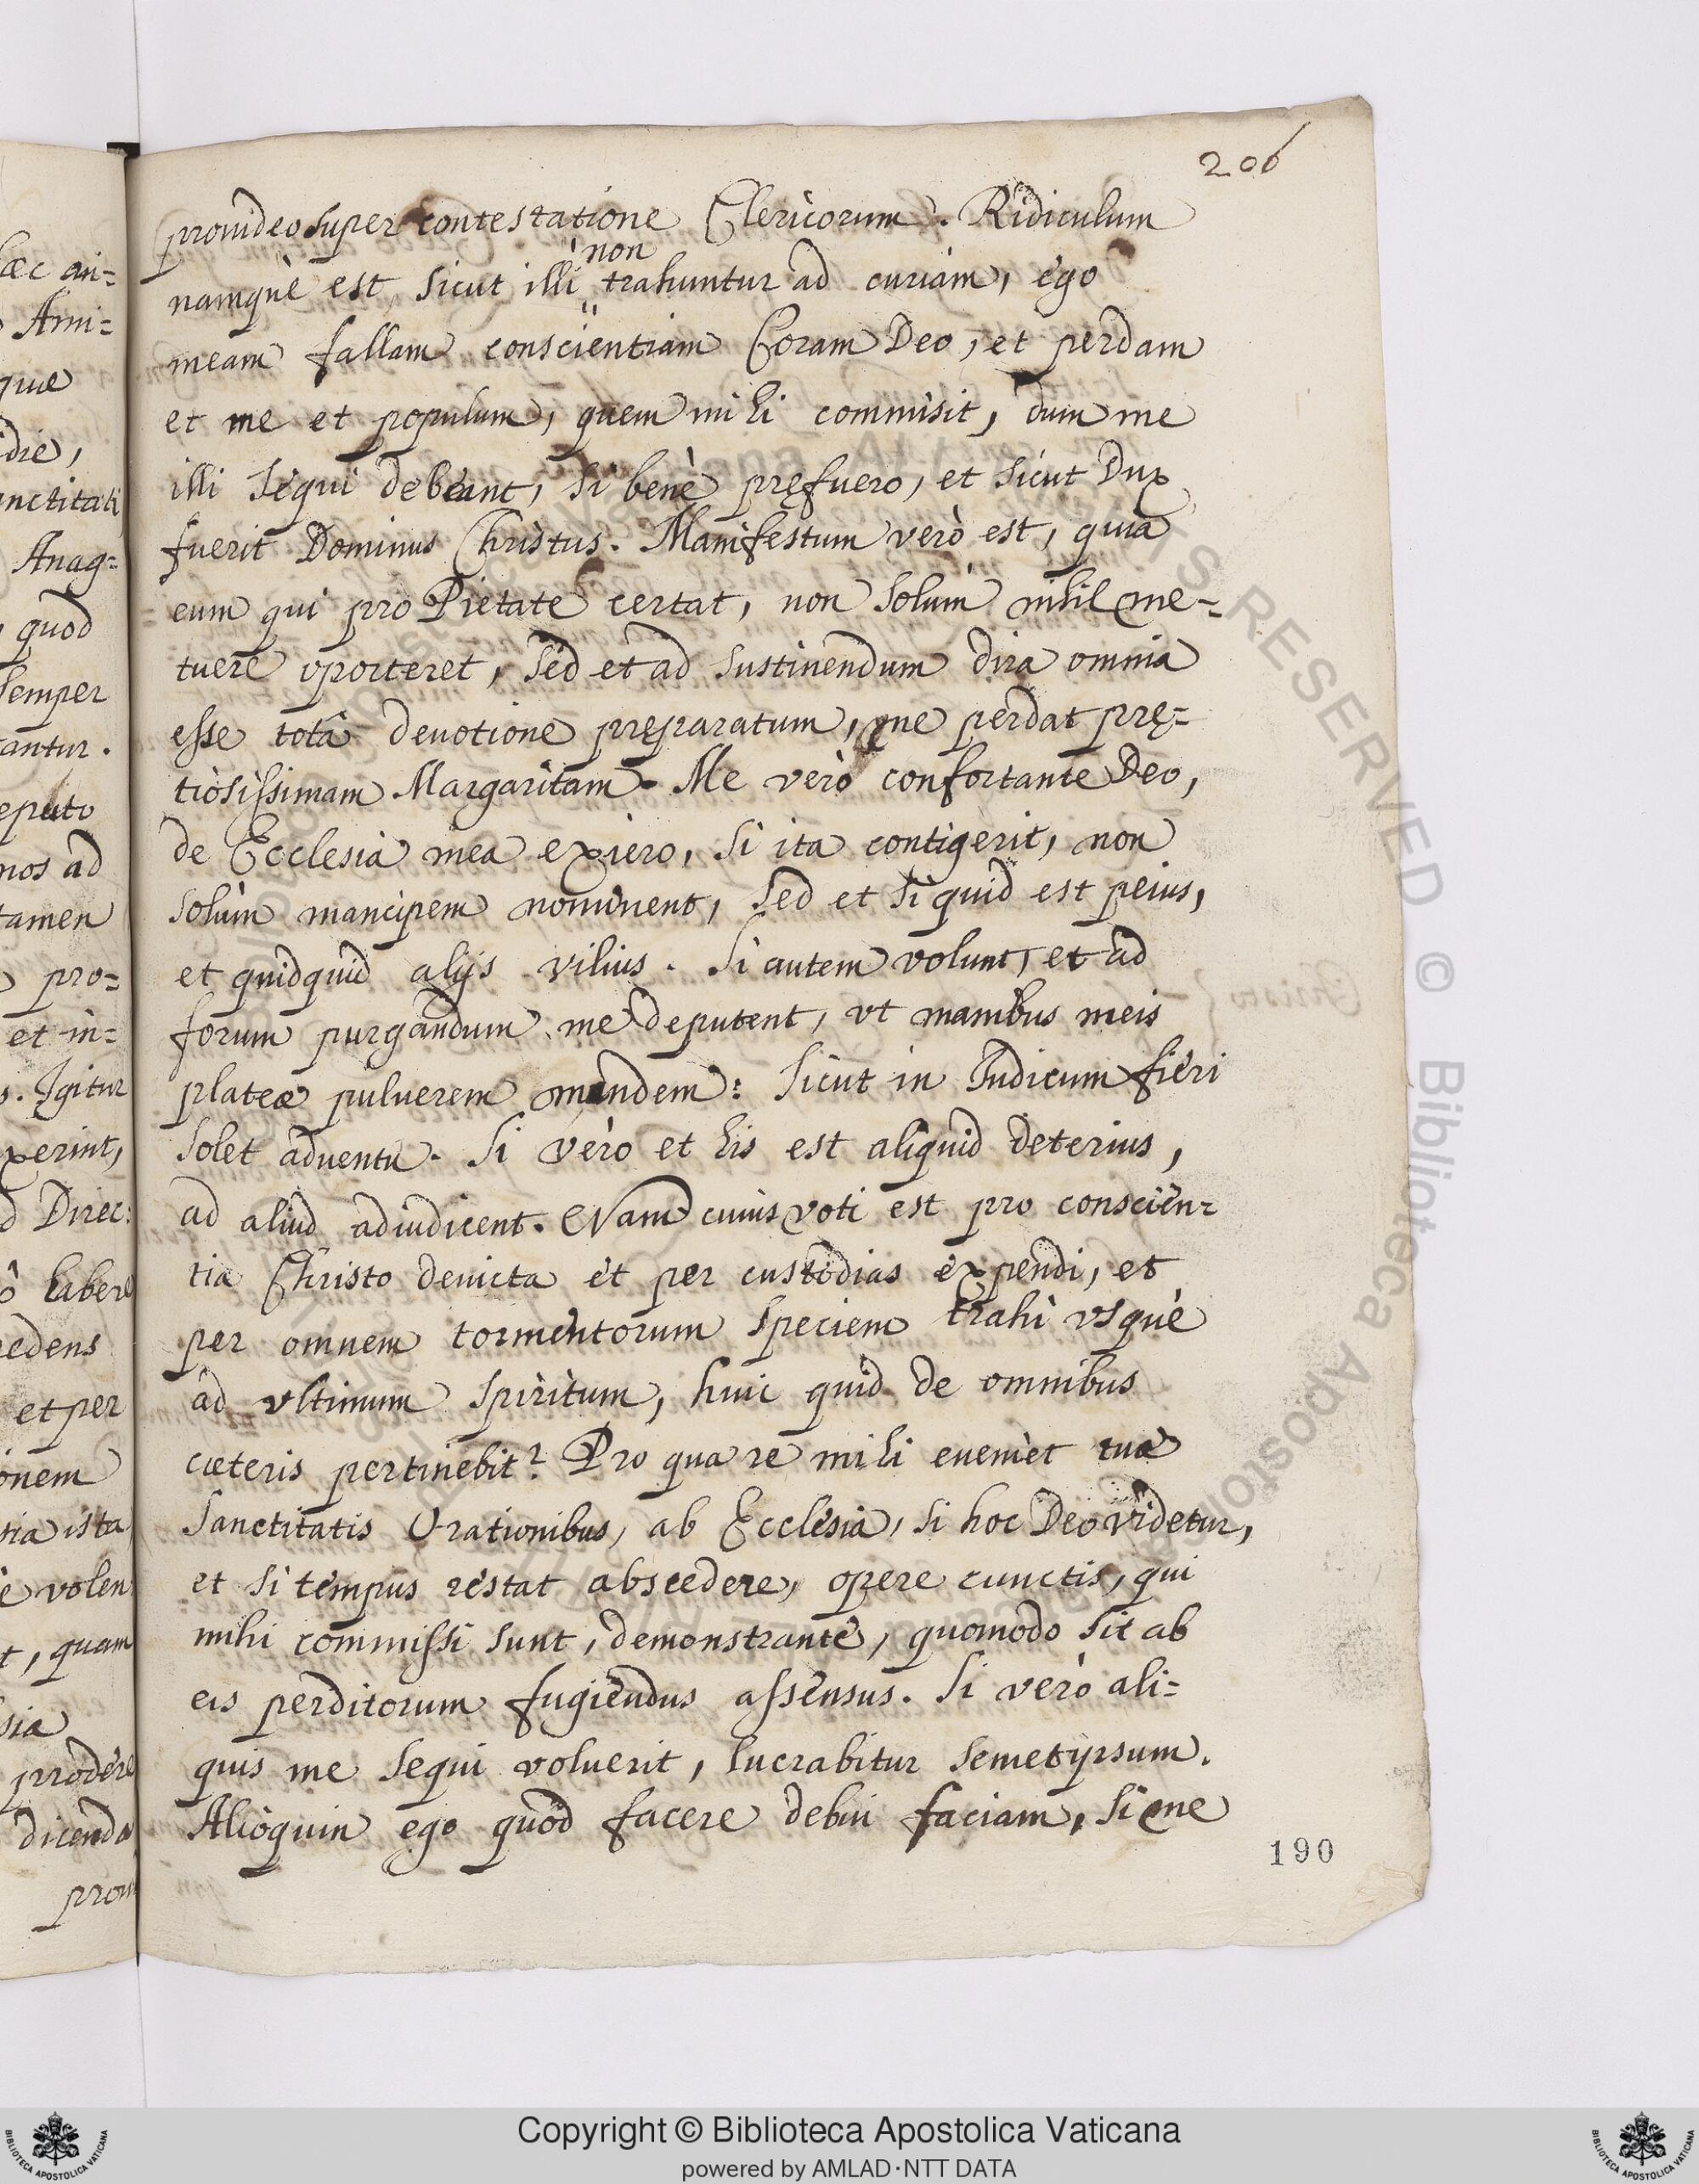 206
prouideo super contestatione Clericorum. Ridiculum
non
namquè est, sicut illi trahuntur ad curiam, ego
meam fallam conscientiam Coram Deo, et perdam
et me et populum, quem mihi commisit, dum me
illi sequi debeant, si benè pręfuero, et sicut Dux
fuerit Dominus Christus. Manifestum verò est, quia
eum qui pro Pietate certat, non solùm nihil me-
tuere oporteret, sed et ad sustinendum dira omnia
esse totâ deuotione pręparatum, ne perdat prę=
tiosissimam Margaritam. Me verò confortante Deo,
de Ecclesia mea exiero, si ita contigerit, non
solùm mancipem nominent, sed et si quid est peius,
et quidquid alijs vilius. Si autem volunt, et ad
forum purgandum me deputent, vt manibus meis
plateæ puluerem mundem: sicut in Iudicum fieri
solet aduentu. Si verò et his est aliquid deterius,
ad aliud adiudicent. Nam cuius voti est pro conscien-
tia Christo deuicta et per custodias expendi, et
per omnem tormentorum speciem trahi vsquè
ad vltimum spiritum, huic quid de omnibus
cæteris pertinebit? Pro qua re mihi eueniet tuæ
Sanctitatis Orationibus, ab Ecclesia, si hoc Deo videtur,
et si tempus restat abscedere, opere cunctis, qui
mihi commissi sunt, demonstrante, quomodo sit ab
eis perditorum fugiendus assensus. Si verò ali=
quis me sequi voluerit, lucrabitur semetipsum.
Alioquin ego quod facere debui faciam, si me
190
æc an=
Ami=
que
die,
anctitati
Anag=
quod
semper
antur.
eputo
nos ad
tamen
pro=
et in=
s. Igitur
xerint,
d Direc:
ô habere
edens
et per
onem
sia ista
è volen
t, quam
sia
prodere
dicenda
proui
Copyright © Biblioteca Apostolica Vaticana
powered by AMLAD·NTT DATA
BIBLIOTECA APOSTOLICA VATICANA
BIBLIOTECA APOSTOLICA VATICANA